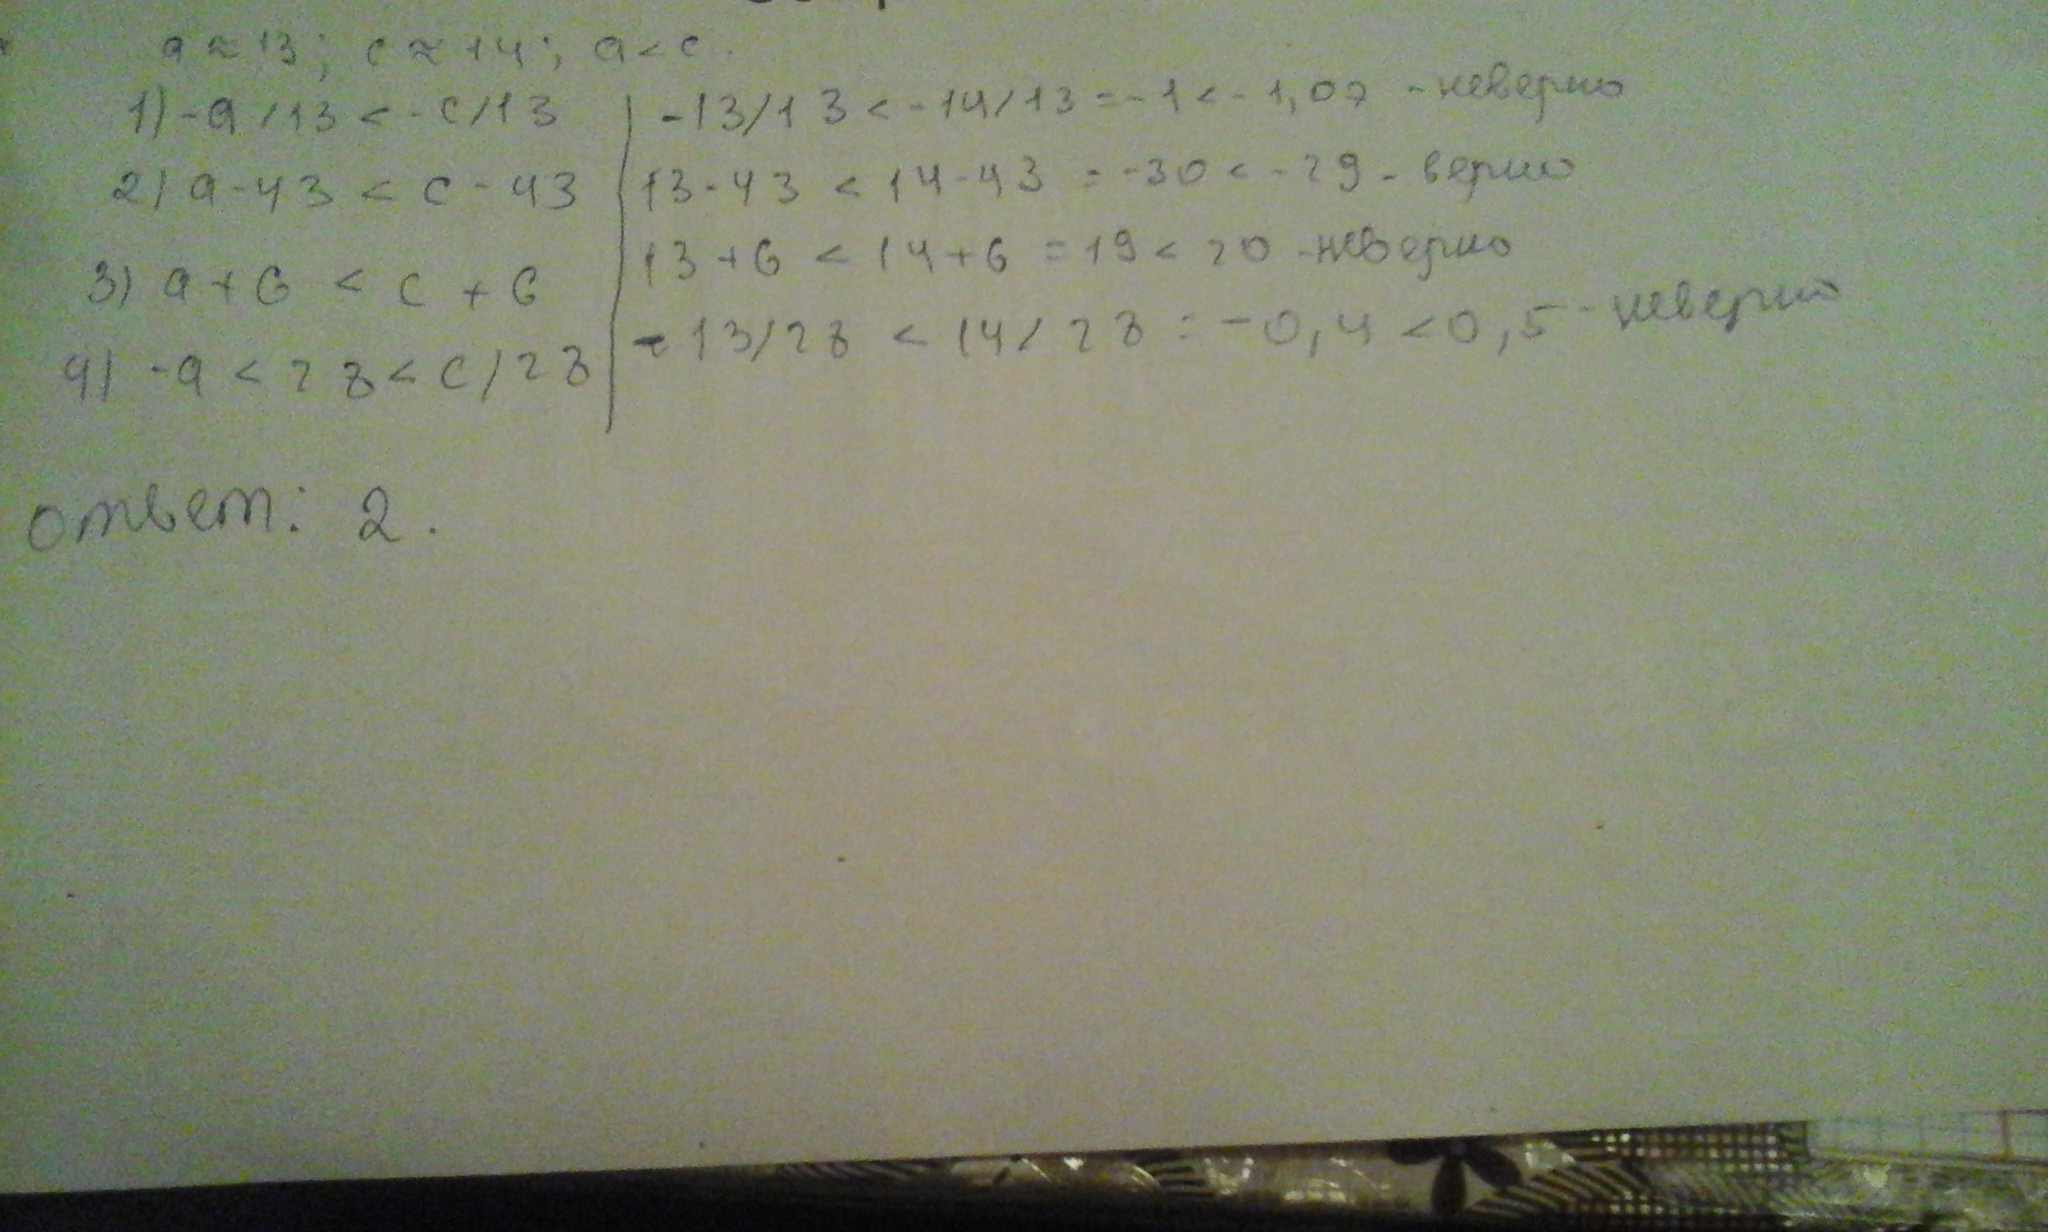 а ≈ 13; с ≈ 14; а < с.
1) -а/13 < -с/13 | -13/13 < -14/13 = -1 < -1,07 - неверно
2) а - 43 < с - 43 | 13 - 43 < 14 - 43 = -30 < -29 - верно
3) а + 6 < с + 6 | 13 + 6 < 14 + 6 = 19 < 20 - неверно
4) -а < 28 < с/28 | -13/28 < 14/28 = -0,4 < 0,5 - неверно
ответ: 2.